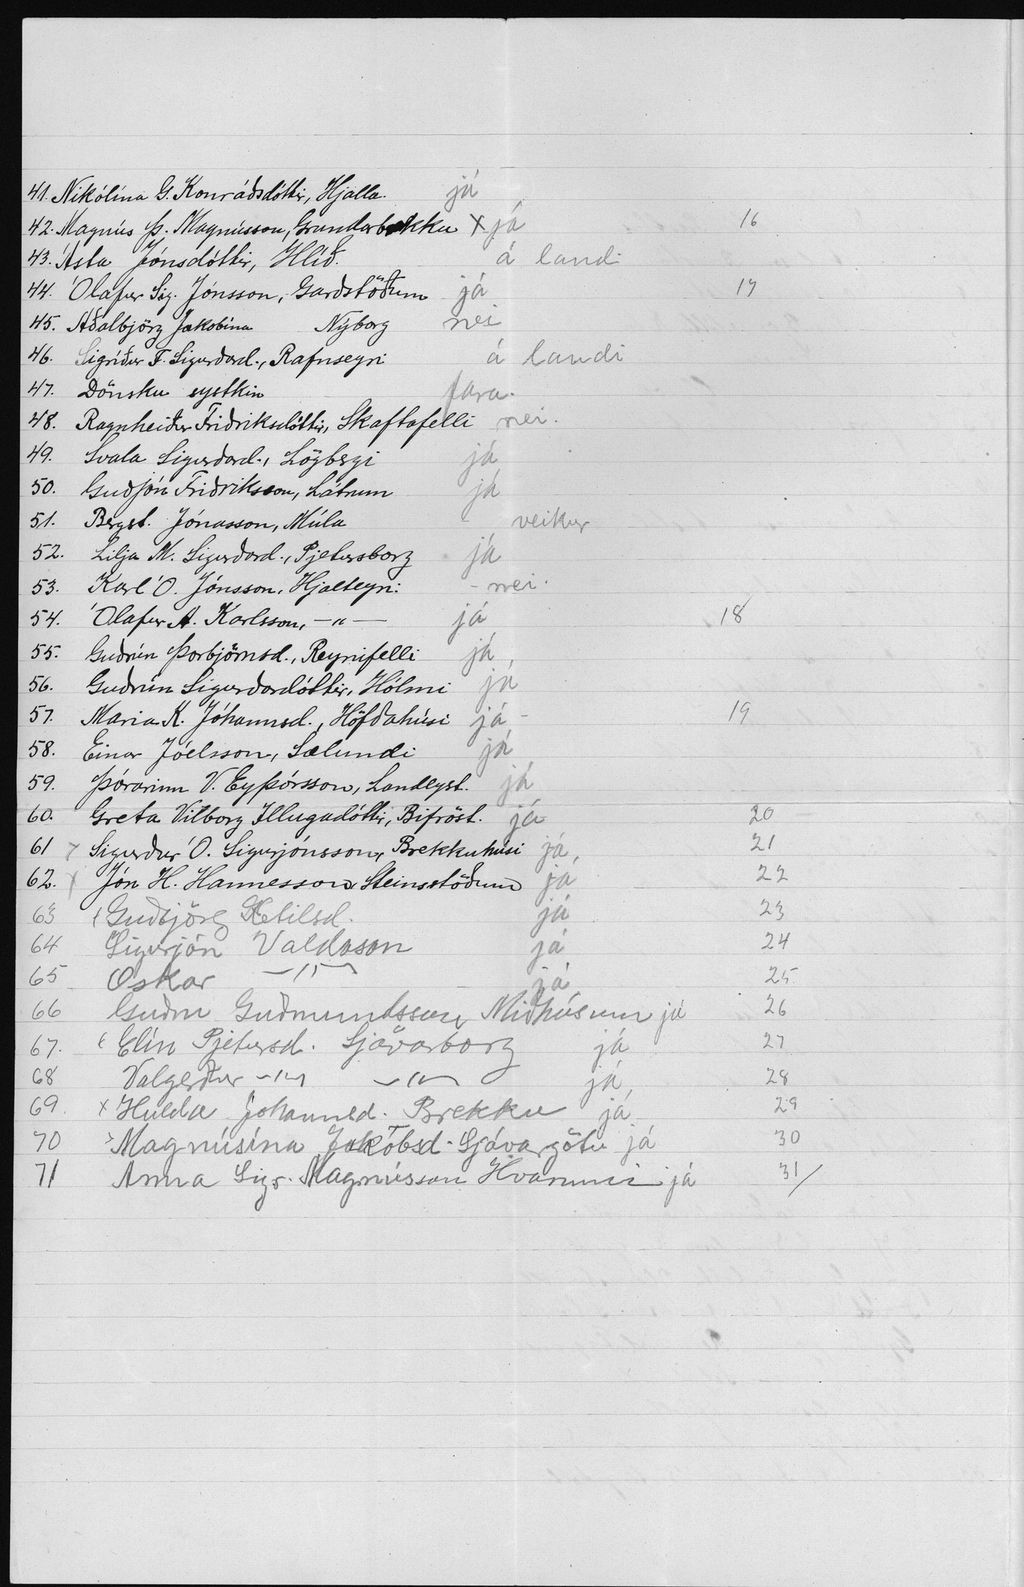 41. Nikólína G. Konráðsdóttir, Hjalla. já
42. Magnús Þ. Magnússon, Grundarbrekku X já 16
43. Ásta Jónsdóttir, Hlíð. á landi
44. Ólafur Sig. Jónsson, Garðstöðum já 17
45. Aðalbjörg Jakobína Nýborg nei
46. Sigríður F. Sigurðard., Rafnseyri á landi
47. Dönsku systkin fara.
48. Ragnheiður Friðriksdóttir, Skaftafelli nei.
49. Svala Sigurðard., Lögbergi já
50. Guðjón Friðriksson, Látrum já
51. Bergst. Jónasson, Múla veikur
52. Lilja M. Sigurðard., Pjetursborg já
53. Karl Ó. Jónsson, Hjalteyri - nei.
54. Ólafur A. Karlsson, —"— já 18
55. Guðrún Þorbjörnsd., Reynifelli já
56. Guðrún Sigurðardóttir, Hólmi já
57. María K. Jóhannsd., Höfðahúsi já - 19
58. Einar Jóelsson, Sælundi já
59. Þórarinn V. Eyþórsson, Landlyst. já
60. Greta Vilborg Illugadóttir, Bifröst. já 20
61 Sigurður Ó. Sigurjónsson, Brekkuhúsi já, 21
62. Jón H. Hannesson, Steinsstöðum já 22
63 Guðbjörg Ketilsd. já 23
64 Sigurjón Valdason já 24
65 Oskar —"— já 25
66 Guðm Guðmundsson, Miðhúsum já 26
67. Elín Pjetursd. Sjávarborg já 27
68 Valgerður —"— —"— já, 28
69. x Hulda Johannsd. Brekku já 29
70 Magnúsína Jakobsd. Sjávargötu já 30
71 Anna Sigr. Magnússon Hvammi já 31/